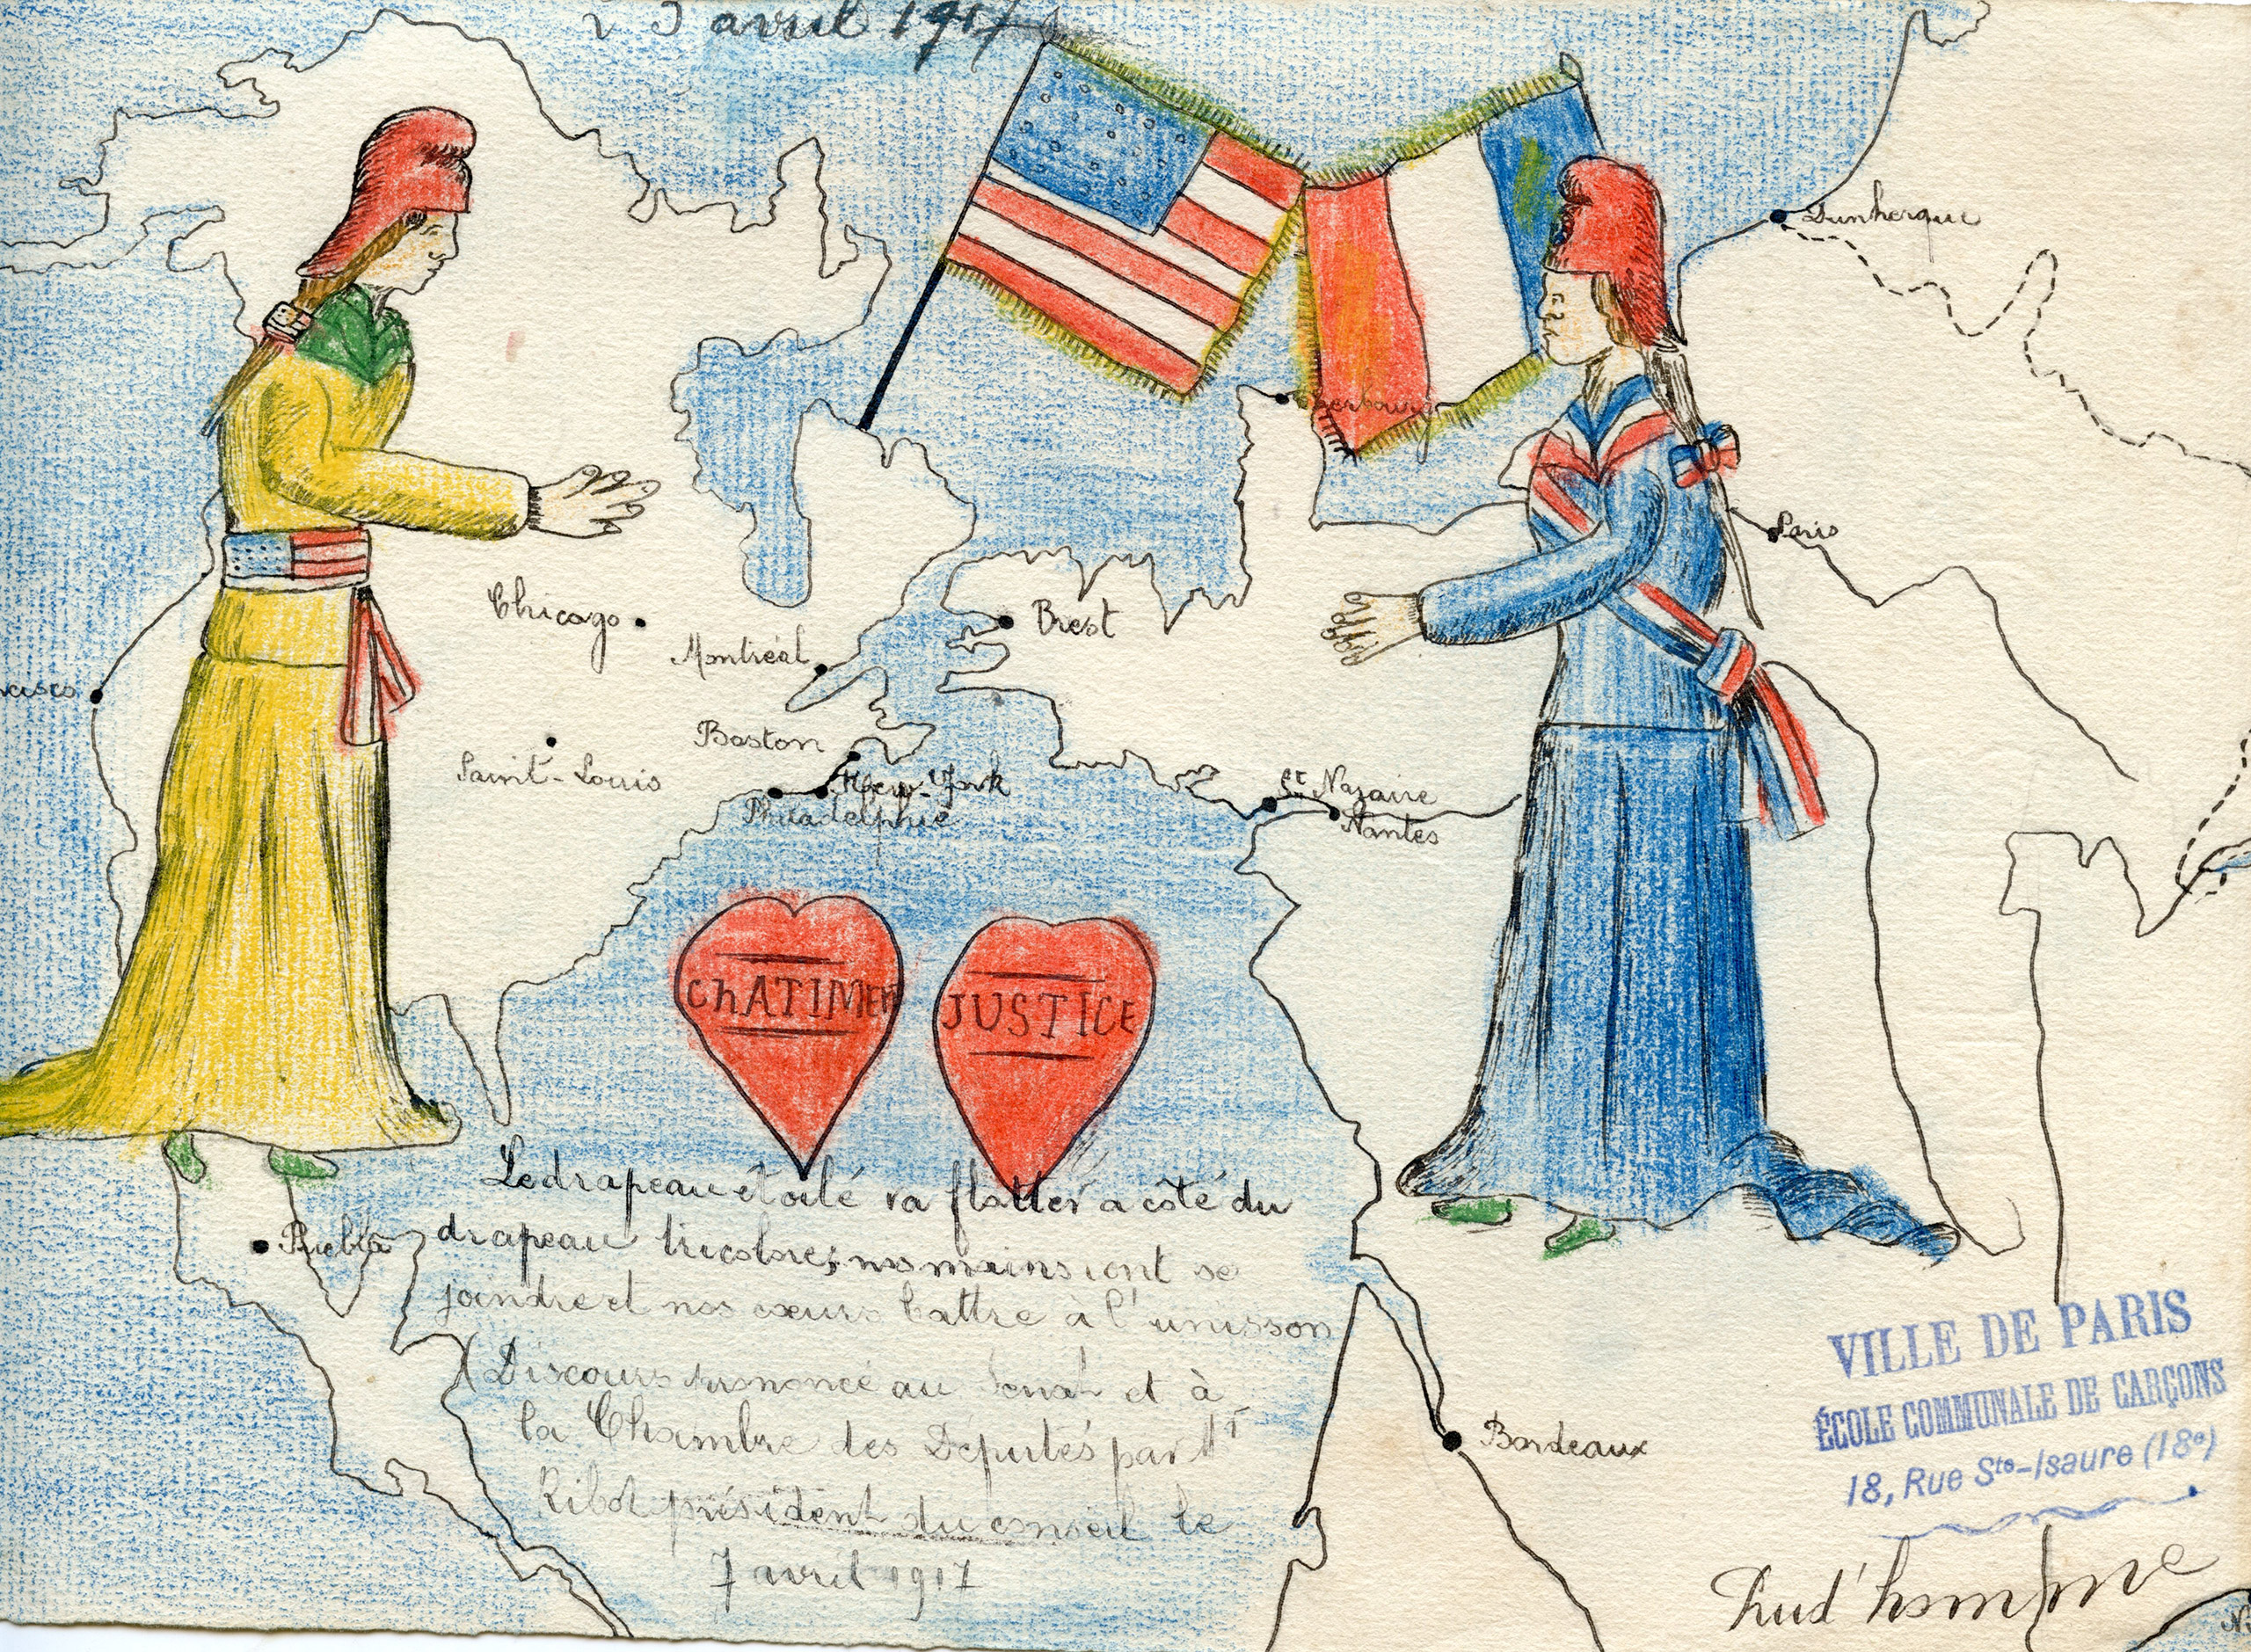 avril 1917
Dunkerque
Cherbourg
Paris
Chicago
Brest
Montréal
Boston
Saint-Louis
New-York
Philadelphie
St Nazaire
Nantes
ChATIMEN
JUSTICE
Le drapeau étoilé va flotter a côté du
drapeau tricolore; nos mains vont se
joindre et nos cœurs battre à l'unisson
(Discours prononcé au Senat et à
la Chambre des Députés par Mr
Ribot président du conseil le
7 avril 1917
Puebla
Bordeaux
VILLE DE PARIS
ÉCOLE COMMUNALE DE GARÇONS
18, Rue Ste-Isaure (18e)
Prud'homme